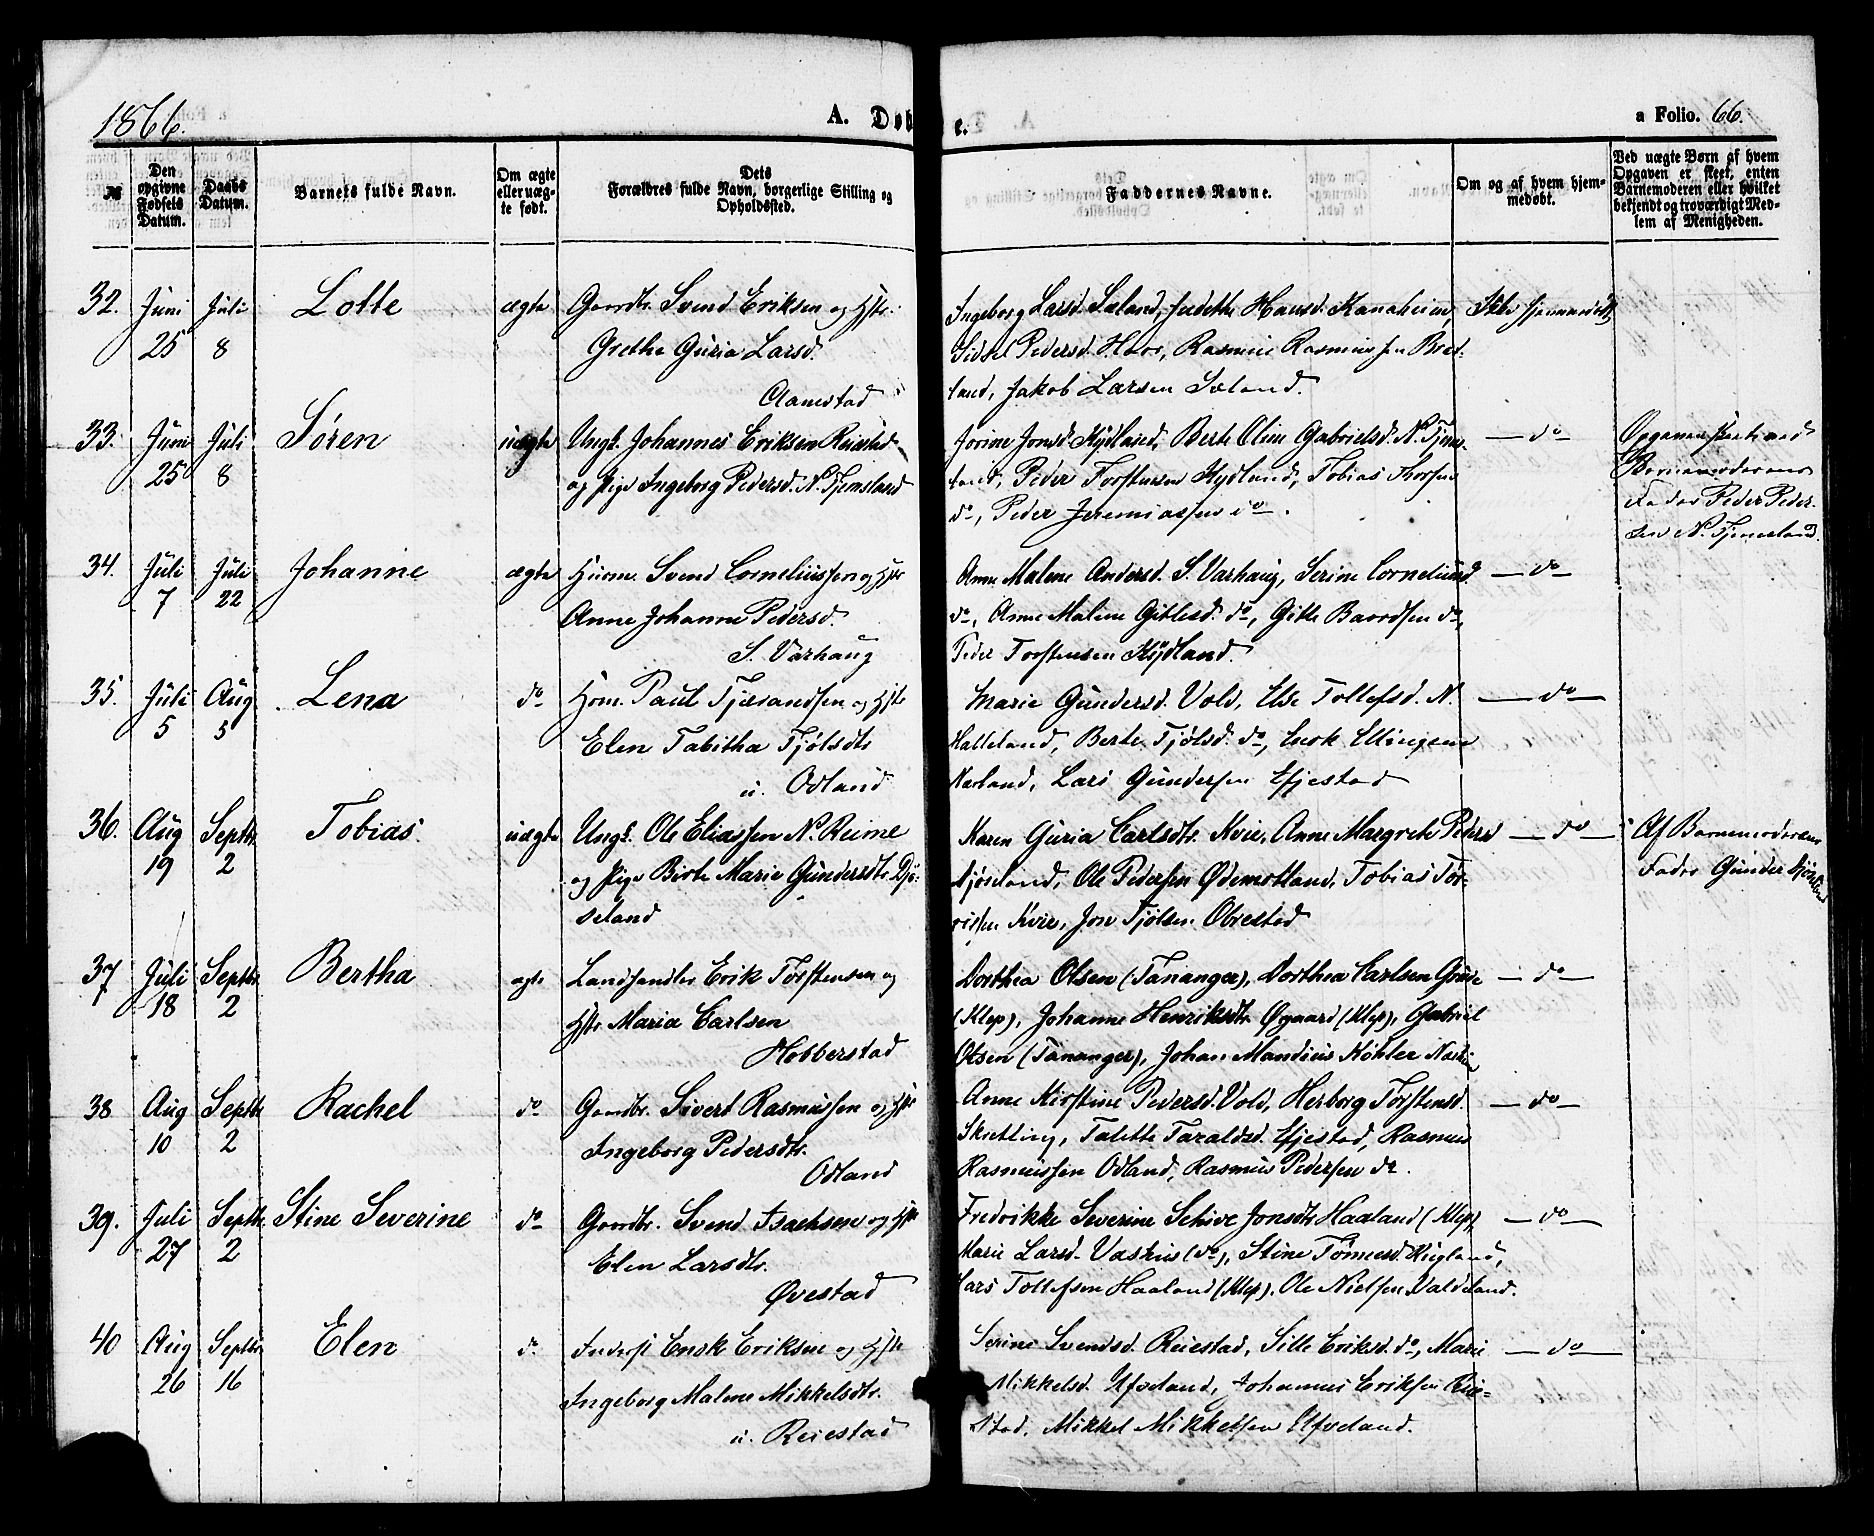 1866.
A. Døb
e.
a Folio. 66.
№
Den opgivne Fødsels Datum.
Daabs Datum.
Barnets fulde Navn.
Om ægte eller uægte født.
Dets Forældres fulde Navn, borgerlige Stilling og Opholdssted.
Faddernes Navne.
Om og af hvem hjemmedøbt.
Ved uægte Børn af hvem Opgaven er skeet, enten Barnemoderen eller hvilket bekjendt og troværdigt Medlem af Menigheden.
32. Juni Juli Lotte ægte Gaardbr. Svend Eriksen og Hstr. Ingeborg Larsd. Sæland, Hansd. Kanaheim, Ikke hjemmedøbt
25 8 Grethe Guria Larsd. Pedersd. Haar, Rasmus Rasmussen Bred-
Aanestad land, Jakob Larsen Sæland.
33. Juni Juli Søren uægte Ungk. Johannes Eriksen Reiestad Jorine Jonsd. Kydland, Berte Oline Gabrielsd. N. Tjems- — do — Opgaven skeet ved
25 8 og Pige Ingeborg Pedersd. N. Tjemsland land, Peder Torstensen Kydland, Tobias Thorsen Barnemoderens
do, Peder Jeremiassen do. Fader Peder Peder-
sen N. Tjemsland.
34. Juli Juli Johanne ægte Huusm. Svend Corneliussen og Hstr Anne Malene Andersd. S. Varhaug, Serine Corneliusd. — do —
7 22 Anne Johanne Pedersd. do, Anne Malene Gitlesd. do, Gitle Baardsen do,
S. Varhaug Peder Torstensen Kydland.
35. Juli Aug Lena do Huusm. Paul Tjærandsen og Hstr Marie Gundersd. Vold, Else Tollefsd. N. — do —
5 5 Elen Tabitha Tjølsdtr Halleland, Berte Tjølsd. do,
u. Odland Nærland, Lars Gundersen Efjestad
36. Aug Septbr. Tobias. uægte Ungk. Ole Eliassen N. Reime Karen Guria Carlsdtr. Kvie, Anne Margrete Pedersd — do — Af Barnemoderens
19 2 og Pige Birte Marie Gundersdtr. Djø- Njøseland, Ole Pedersen Ødemotland, Tobias Tor- Fader Gunder
seland rissen Kvie, Jon Tjølsen Obrestad
37 Juli Septbr. Bertha ægte Landhandler Erik Torstensen og Dorthea Olsen (Tananger), Dorthea Carlsen Grude — do —
18 2 Hstr. Maria Carlsen (Klep), Johanne Henriksdtr. Øgaard (Klep), Gabriel
Hobberstad Olsen (Tananger), Johan Mandius Køhler
38 Aug Septbr Rachel do Gaardbr. Sivert Rasmussen og Hstr Anne Kirstine Pedersd. Vold, Herborg Torstensd. — do —
10 2 Ingeborg Pedersdtr. Skretting, Talette Taraldsd. Efjestad, Rasmus
Odland Rasmussen Odland, Rasmus Pedersen do.
39. Juli Septbr. Stine Severine do Gaardbr. Svend Isachsen og Hstr Fredrikke Severine Schive Jonsdtr Haaland (Klep), — do —
27 2 Elen Larsdtr. Marie Larsd. Vashus (do), Stine Tønnesd. Kugland,
Øvestad Lars Tollefsen Haaland (Klep), Ole Nielsen Valdeland.
40 Aug Septbr Elen do Enok Eriksen og Hstr Serine Svendsd. Reiestad, Sille Eriksd. do, Marie — do —
26 16 Ingeborg Malene Mikkelsdtr. Mikkelsd. Ueland, Johannes Eriksen Reie-
u. Reiestad stad, Mikkel Mikkelsen